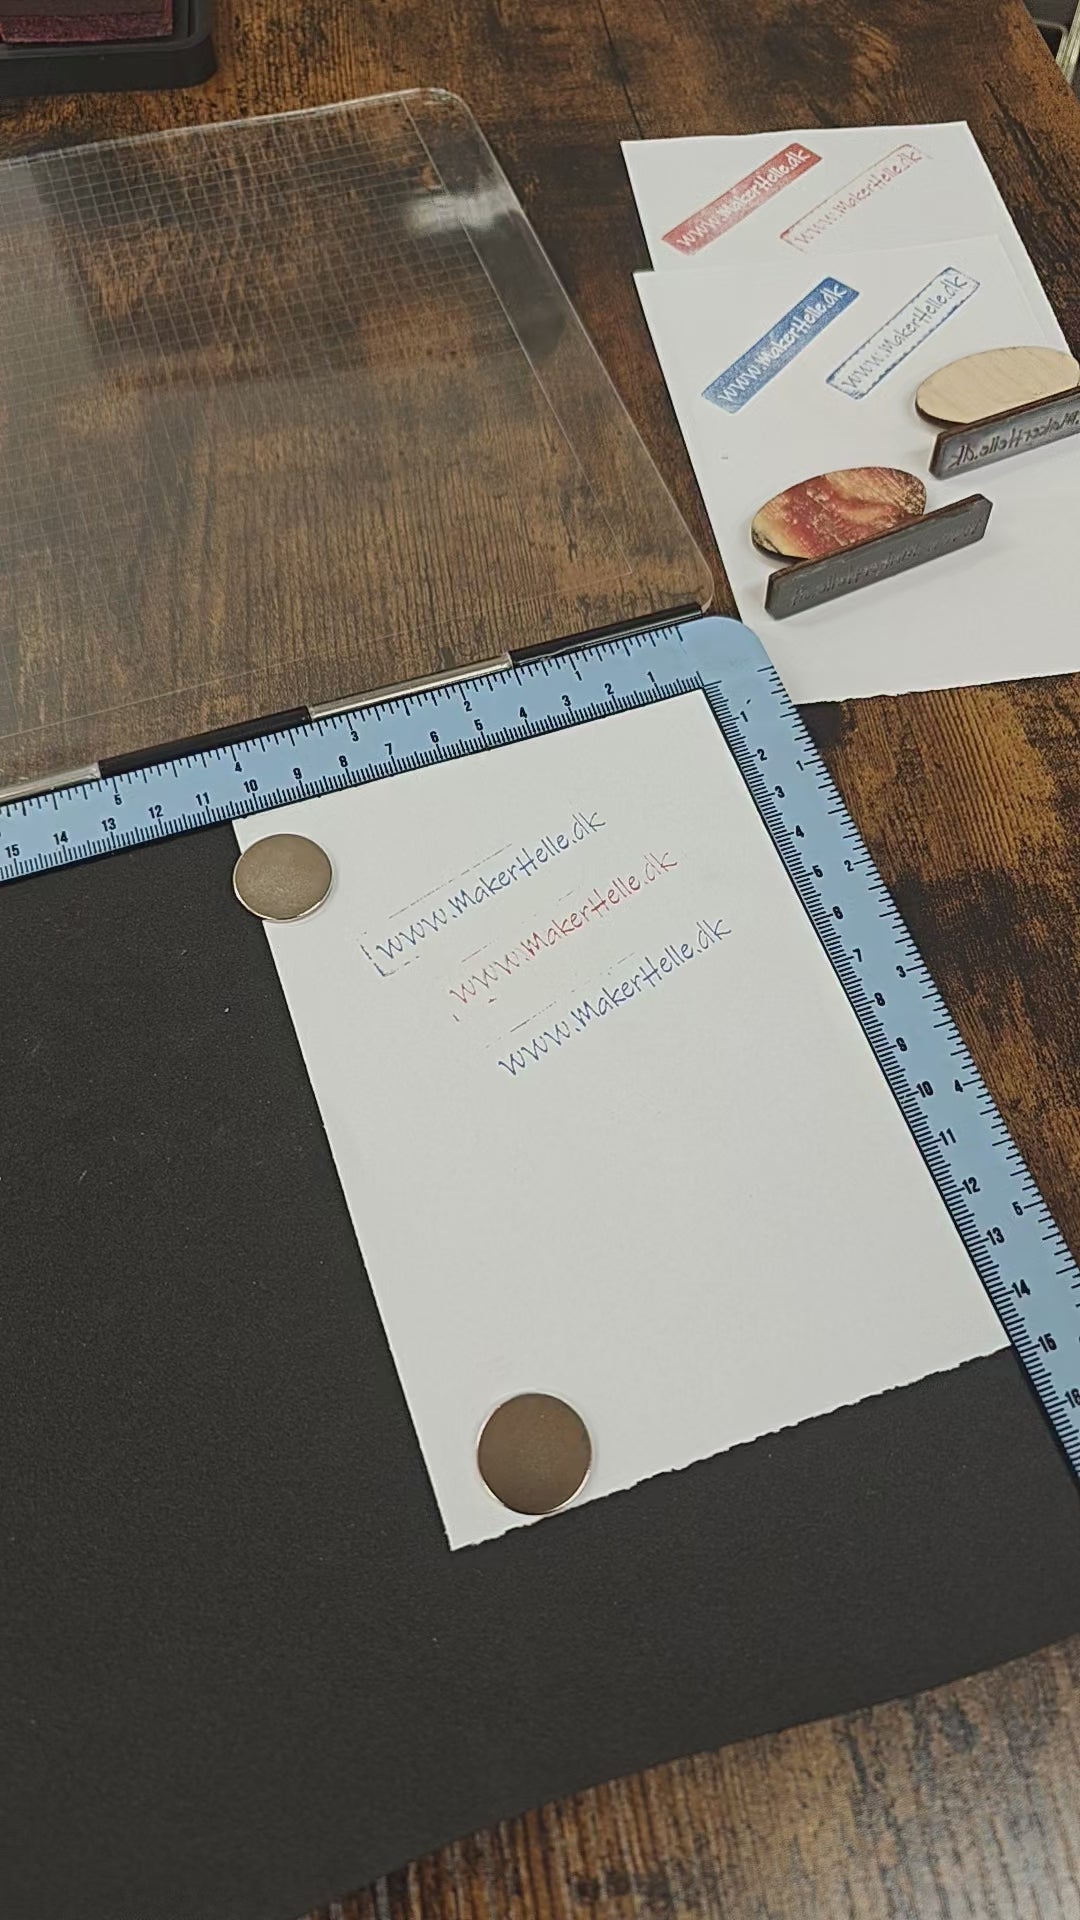 www.MakerHelle.dk
www.MakerHelle.dk
www.MakerHelle.dk
www.MakerHelle.dk
.MakerHelle.dk
1 2 3 4 5
1 2 3 4 5 6 7 8 9 10 11 12 13 14 15
1 2 3 4 5
1 2 3 4 5 6 7 8 9 10 11 12 13 14 15 16
www.MakerHelle.dk
www.MakerHelle.dk
www.MakerHelle.dk